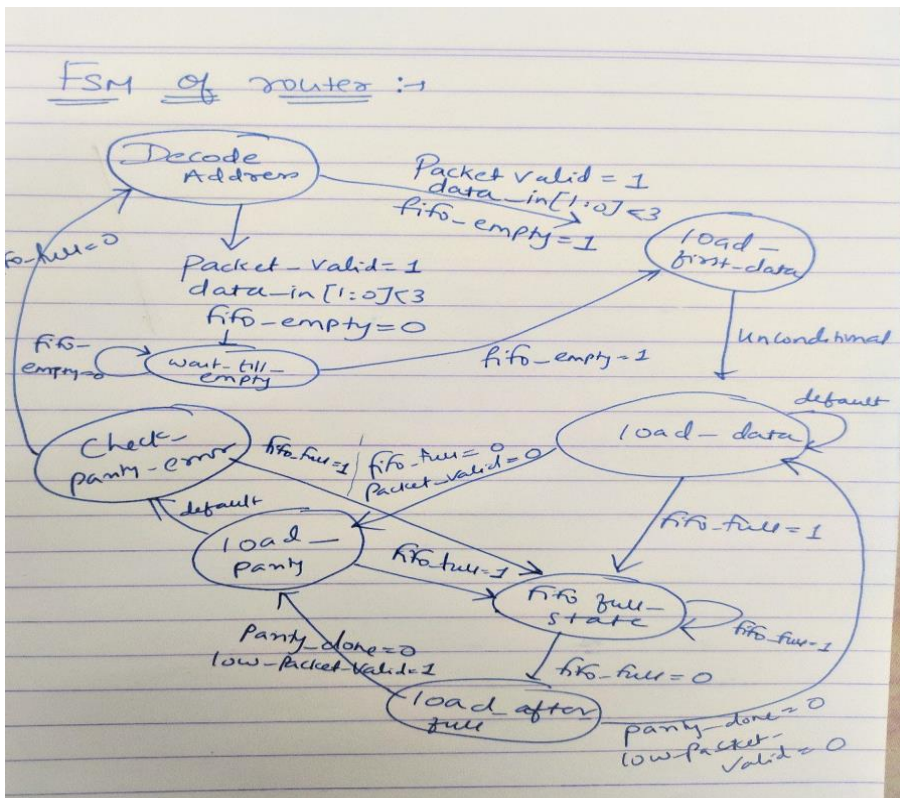 FSM of router :-
Decode
Address
Packet valid = 1
data_in[1:0]<3
fifo_empty=1
load_
first-data
fo_full=0
Packet_valid=1
data_in[1:0]<3
fifo_empty=0
fifo-
empty=0
wait_till_
empty
fifo_empty=1
unconditional
default
load_data
Check_
parity-error
fifo_full=1
fifo_full=0
Packet_valid=0
default
load_
parity
fifo_full=1
fifo_full=1
fifo full_
state
fifo_full=1
Parity_done=0
low_Packet_valid=1
fifo_full=0
load_after
full
parity_done=0
low_packet_
valid=0